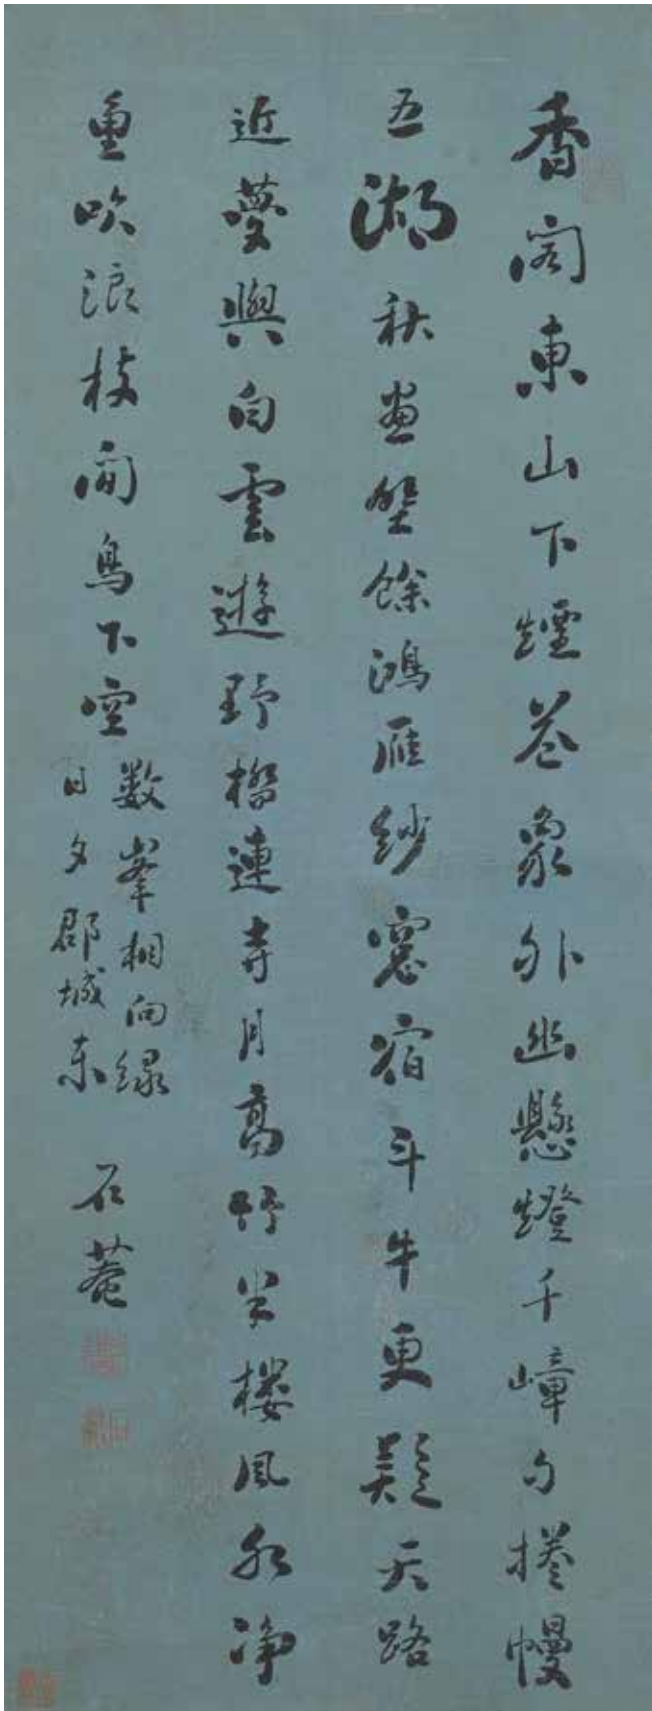 香閣東山下煙花象外幽懸燈千嶂夕捲幔
五湖秋畫壁餘鴻雁紗窗宿斗牛更疑天路
近夢與白雲遊野橋連寺月高竹半樓風水淨
魚吹浪枝閒鳥下空
數峯相向綠
日夕郡城東
石菴